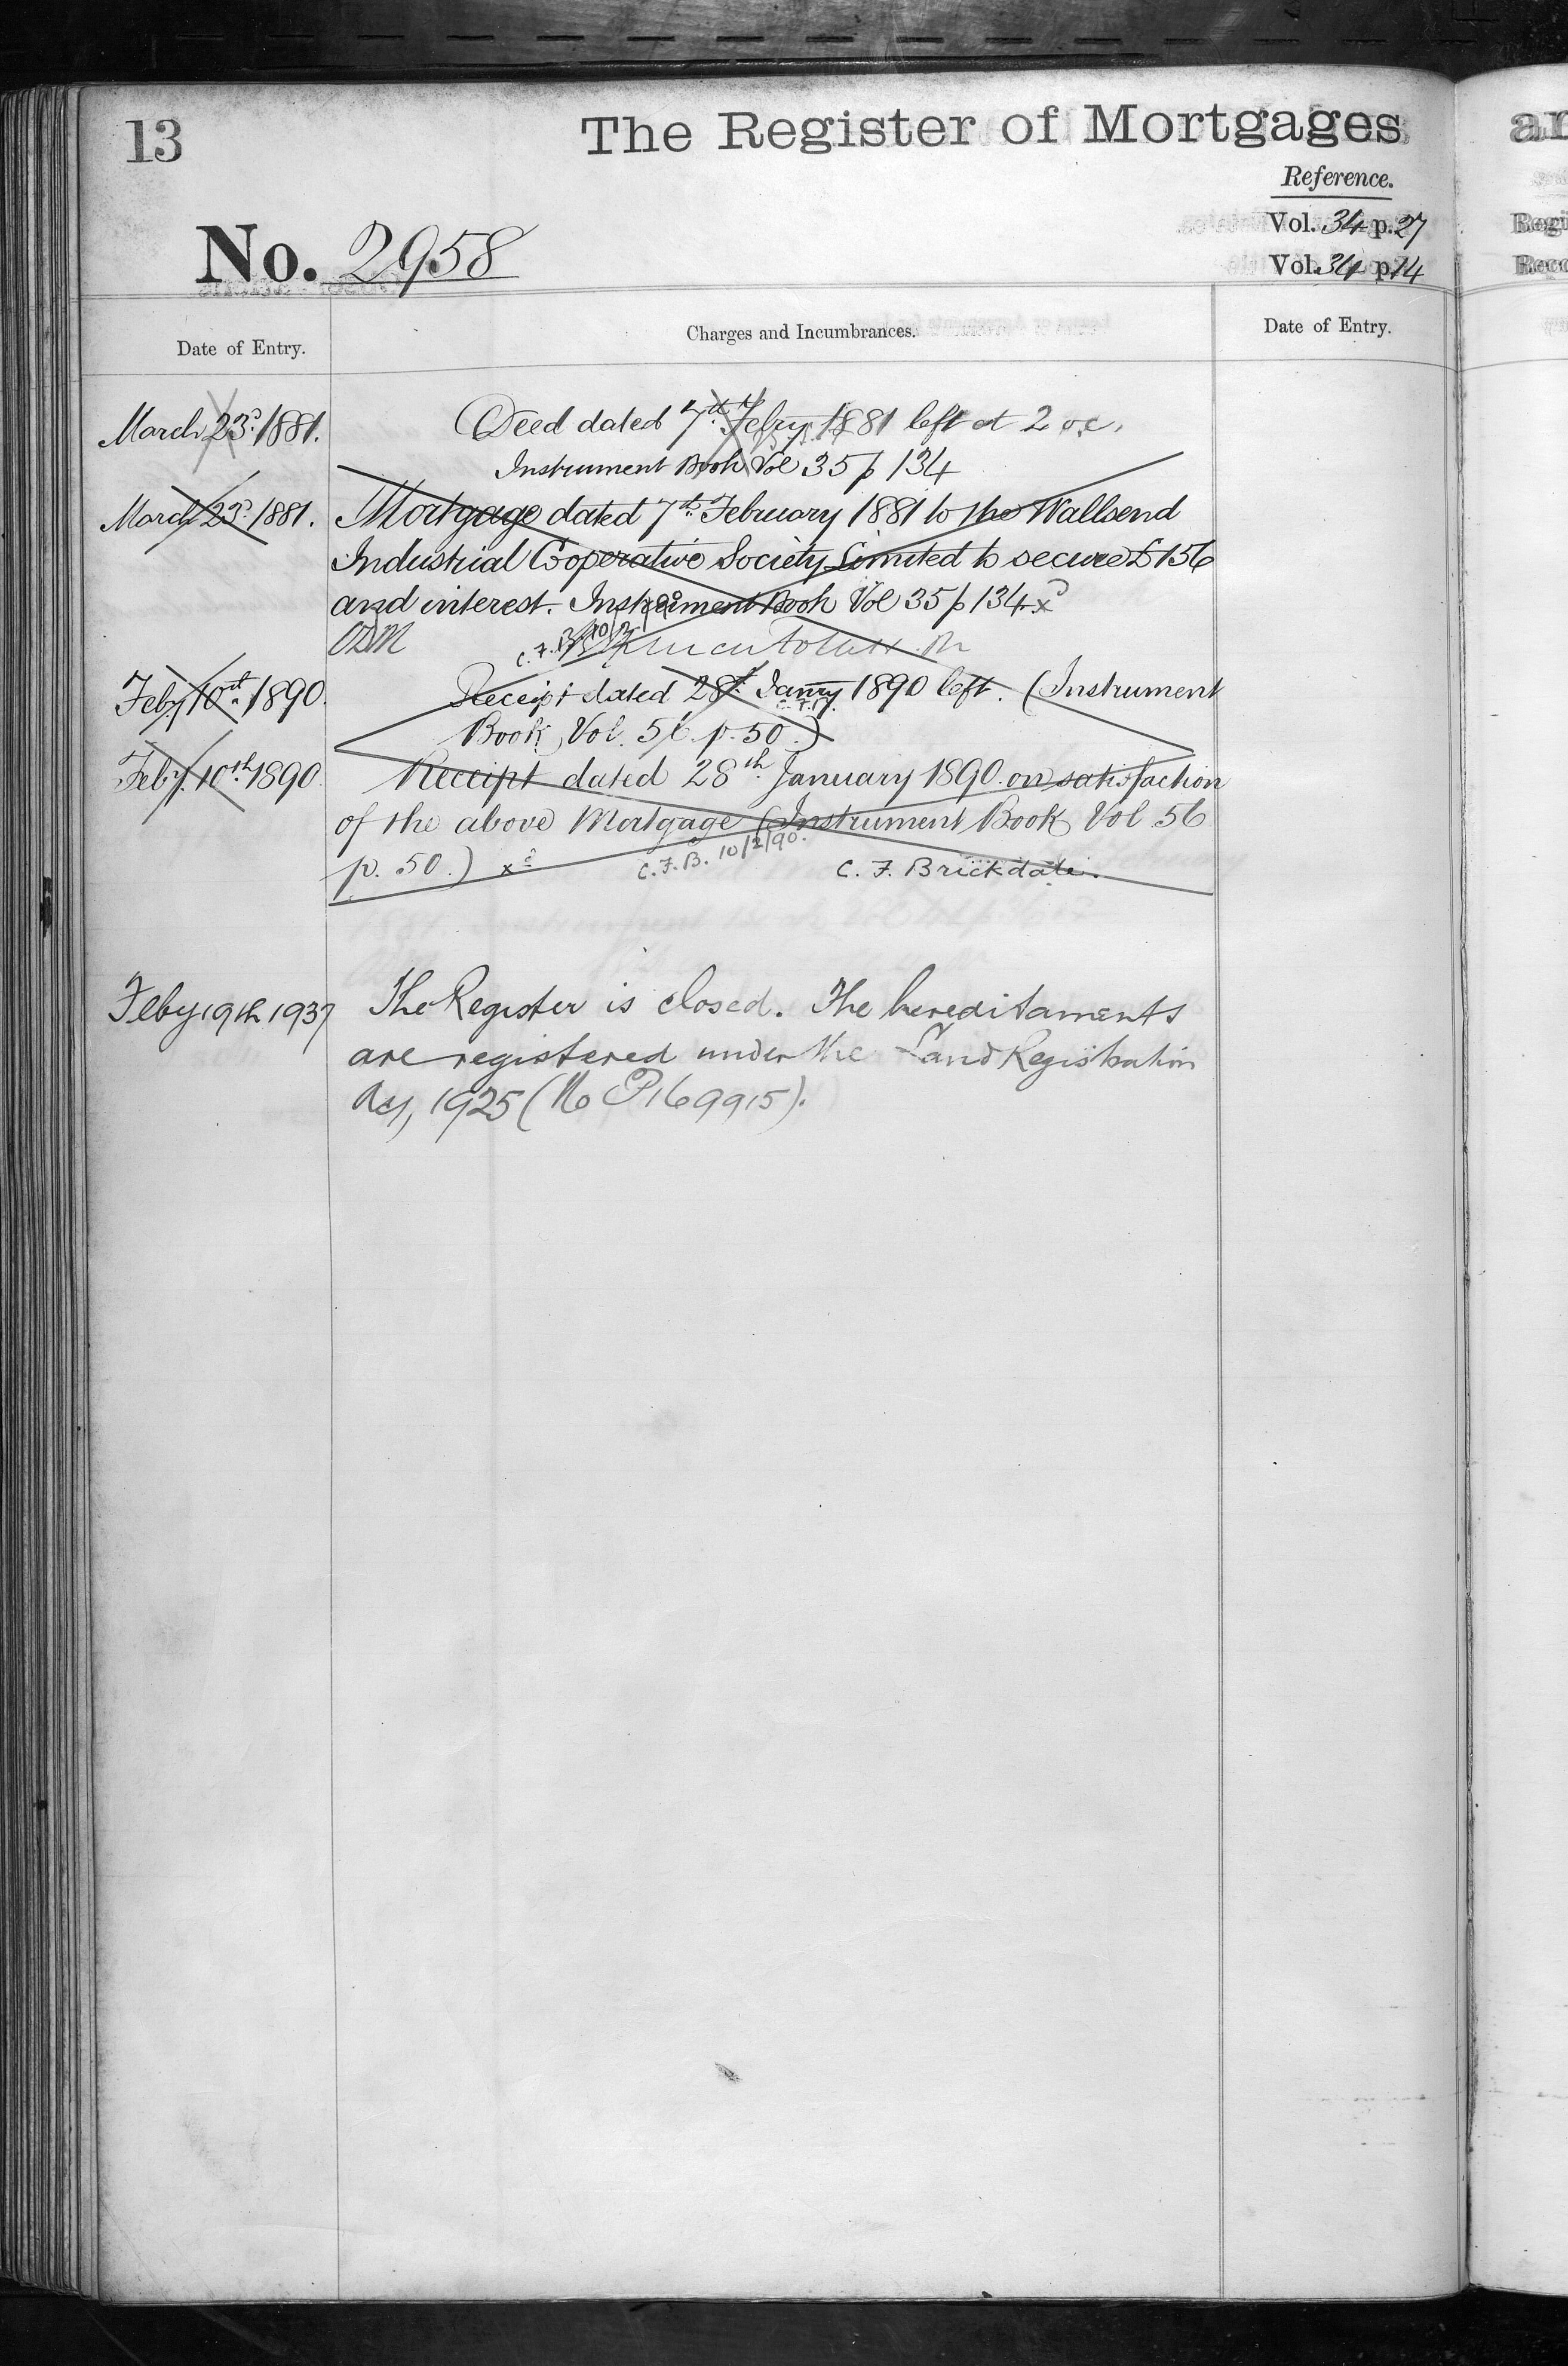 13
The Register of Mortgages
Reference.
No. 2958
Vol. 34 p. 27
Vol. 34 p. 14
Date of Entry.
Charges and Incumbrances.
Date of Entry.
March 23d. 1881.
Deed dated 7th. Febry. 1881 left at 2 o.c.
Instrument Book Vol 35 p 134
March 23d. 1881.
Mortgage dated 7th. February 1881 to the Wallsend
Industrial Cooperative Society Limited to secure £156
and interest. Instrument Book Vol 35 p 134. xd
C.F.B. 10/2/90
Feby. 10th. 1890.
Receipt dated 28th. Janry 1890 left. (Instrument
C.F.B.
Book, Vol. 56 p. 50.)
Feby. 10th. 1890
Receipt dated 28th. January 1890. on satisfaction
of the above Mortgage (Instrument Book Vol 56
p. 50.) xd
C.F.B. 10/2/90.
C. F. Brickdale.
Feby 19th 1937
The Register is closed. The hereditaments
are registered under the Land Registration
Act, 1925 (No P169915).
ar
Regi
Reco